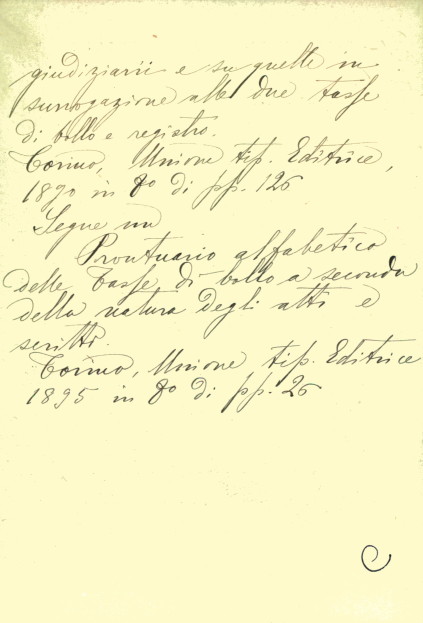 giudiziarii e su quelle in
surrogazione alle due tasse
di bollo e registro.
Torino, Unione tip. Editrice,
1890 in 8° di pp. 126
Segue un
Prontuario alfabetico
delle Tasse di bollo a seconda
della natura degli atti e
scritti.
Torino, Unione tip. Editrice
1895 in 8° di pp. 26